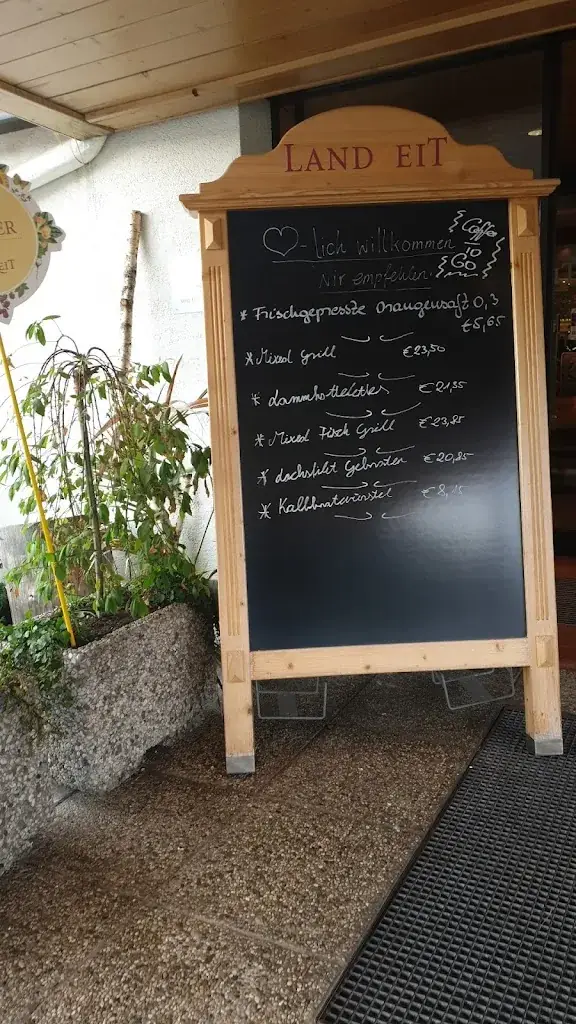 LAND EIT
♡-lich willkommen
Coffe
To
Go
Wir empfehlen:
* Frischgepresste Orangensaft 0,3
€5,65
* Mixed Grill €23,50
* Lammkotelettes €21,35
* Mixed Fisch Grill €23,85
* Gebraten €20,85
* Kalbbratwürstel €8,15
ER
EIT